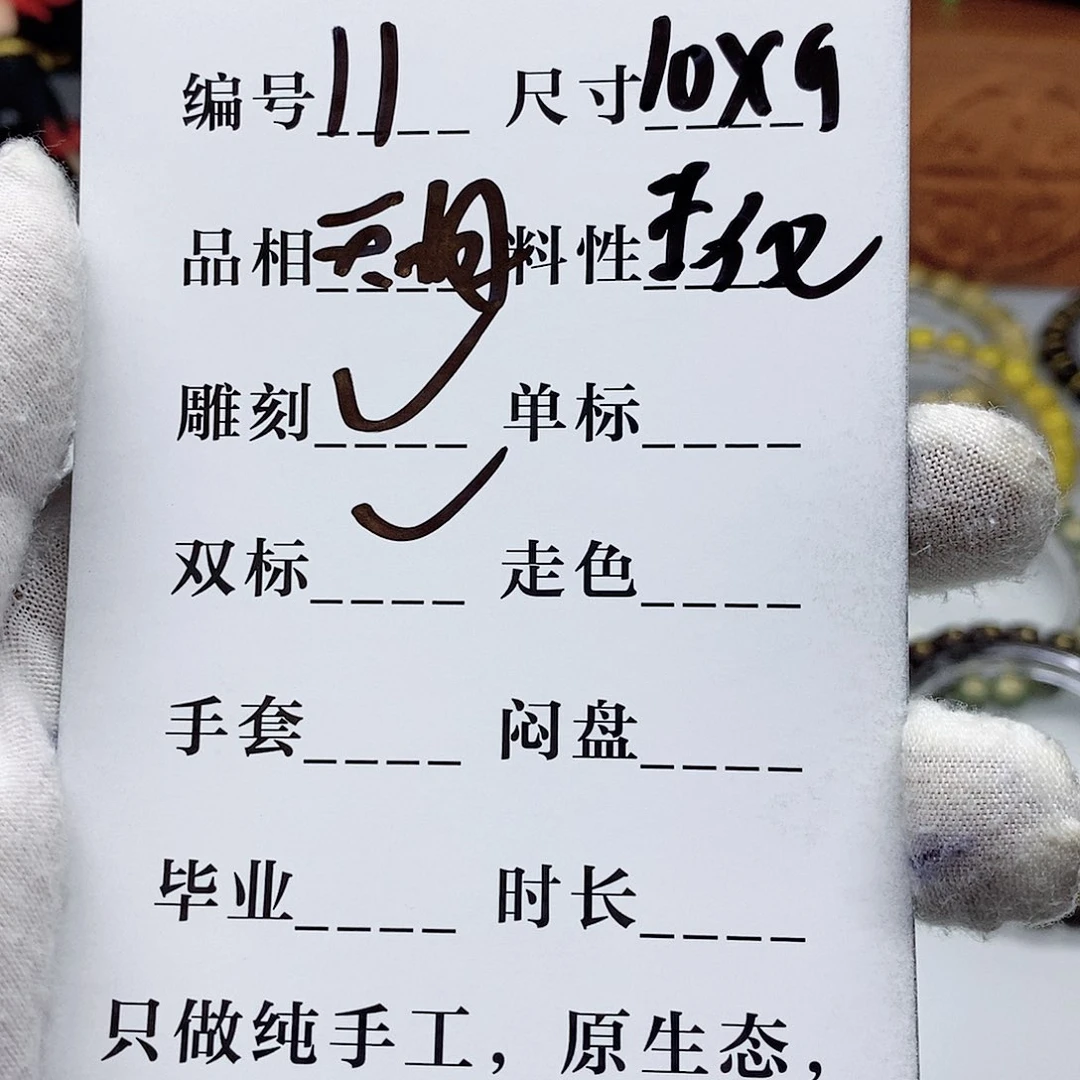 编号11 尺寸10X9
品相 料性
雕刻✓ 单标
双标✓ 走色
手套 闷盘
毕业 时长
只做纯手工，原生态，